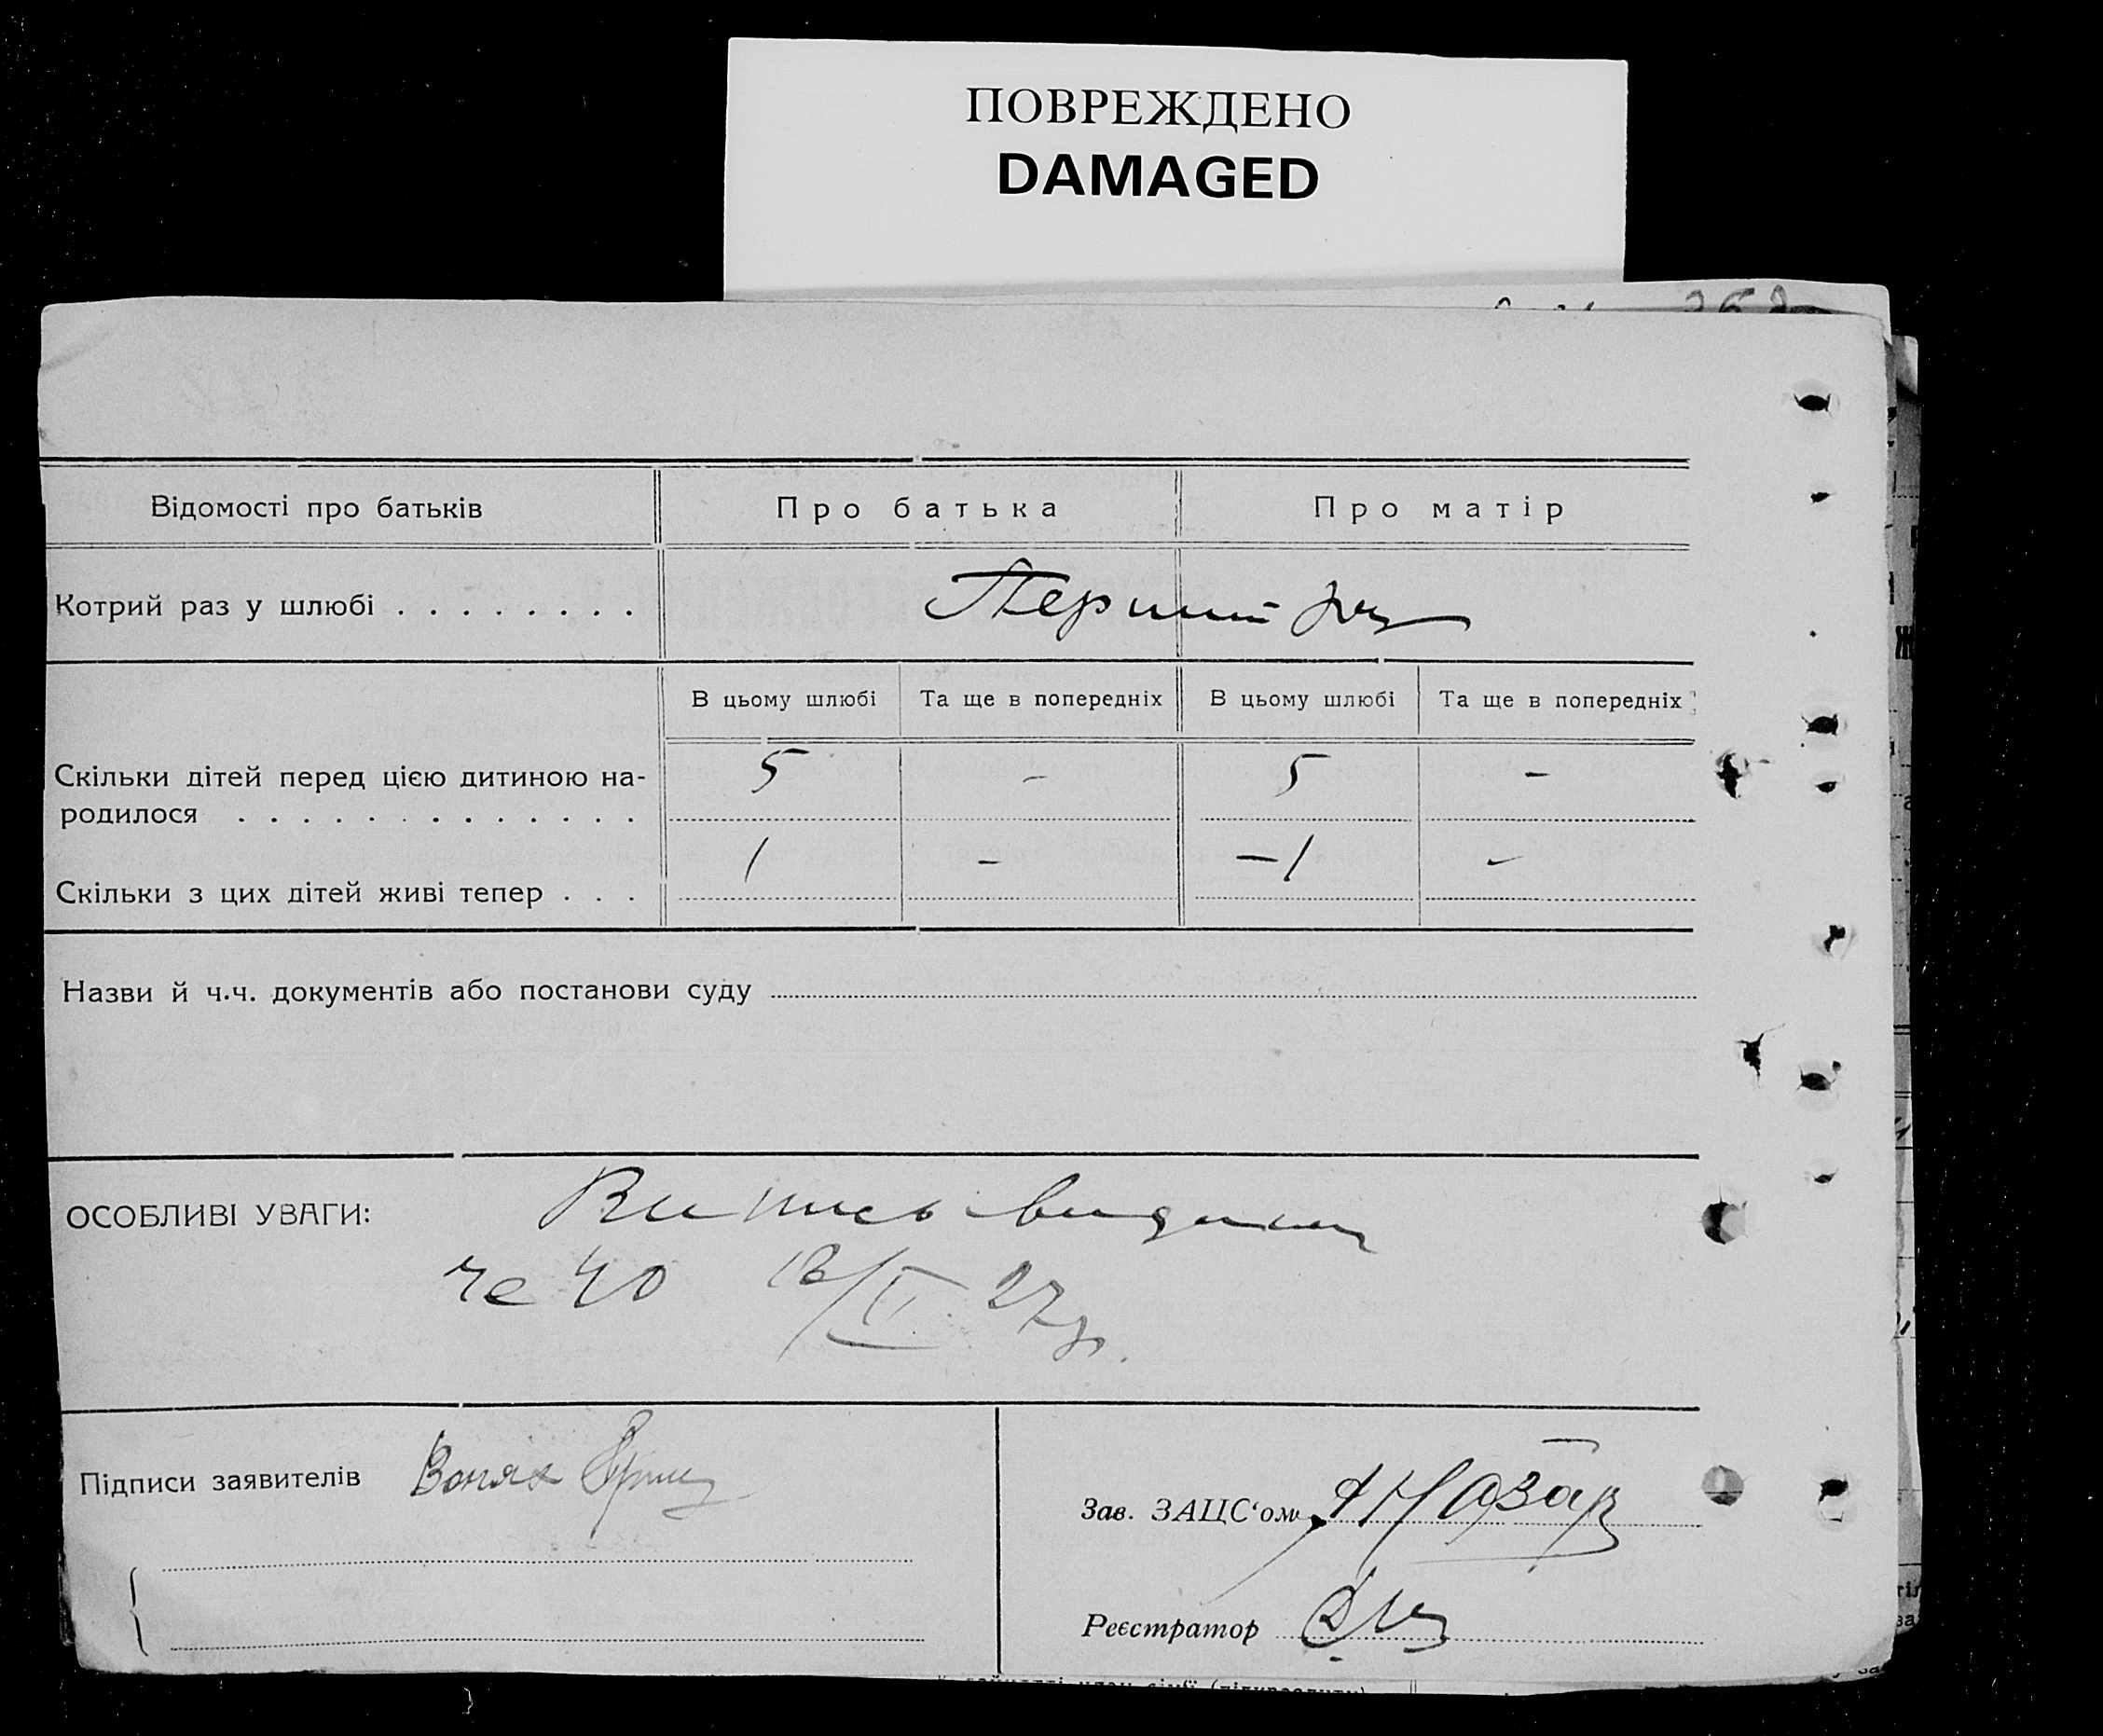 ПОВРЕЖДЕНО
DAMAGED
Відомості про батьків
Про батька
Про матір
Котрий раз у шлюбі . . . . . . . .
Перший раз
В цьому шлюбі
Та ще в попередніх
В цьому шлюбі
Та ще в попередніх
Скільки дітей перед цією дитиною на-
родилося . . . . . . . . . . . . .
5 - 5 -
Скільки з цих дітей живі тепер . . .
1 - -1 -
Назви й ч.ч. документів або постанови суду
ОСОБЛИВІ УВАГИ:
Випись видана
40 27 р.
Підписи заявителів
Зав. ЗАЦС'ом Назар
Реєстратор